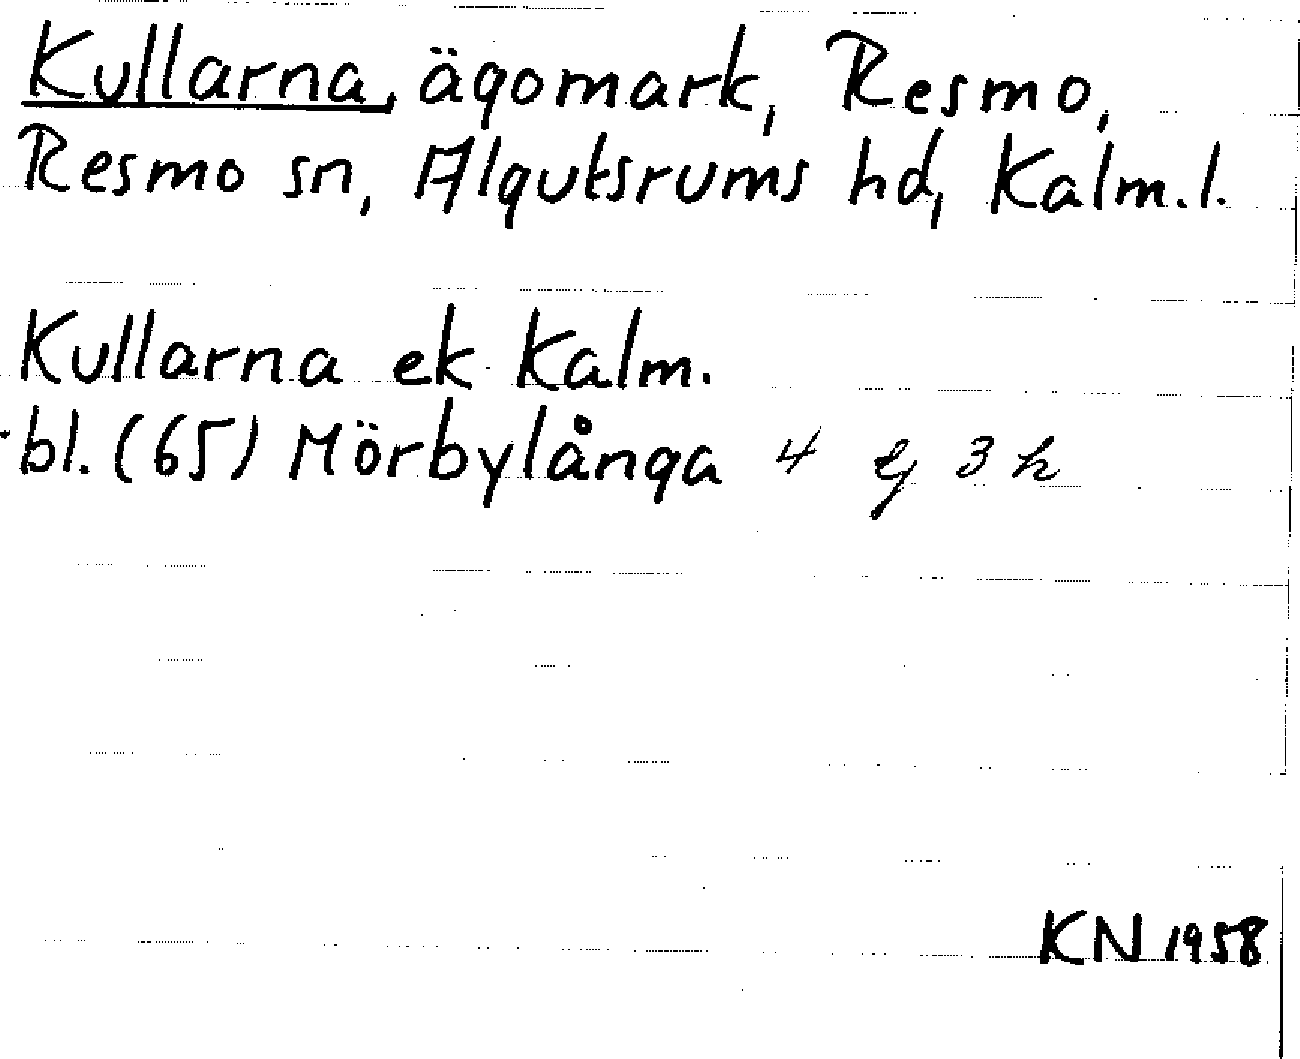 Kullarna, ägomark, Resmo,
Resmo sn, Algutsrums hd, Kalm. l.
Kullarna ek Kalm.
bl. (65) Mörbylånga 4 G 3 h
KN 1958